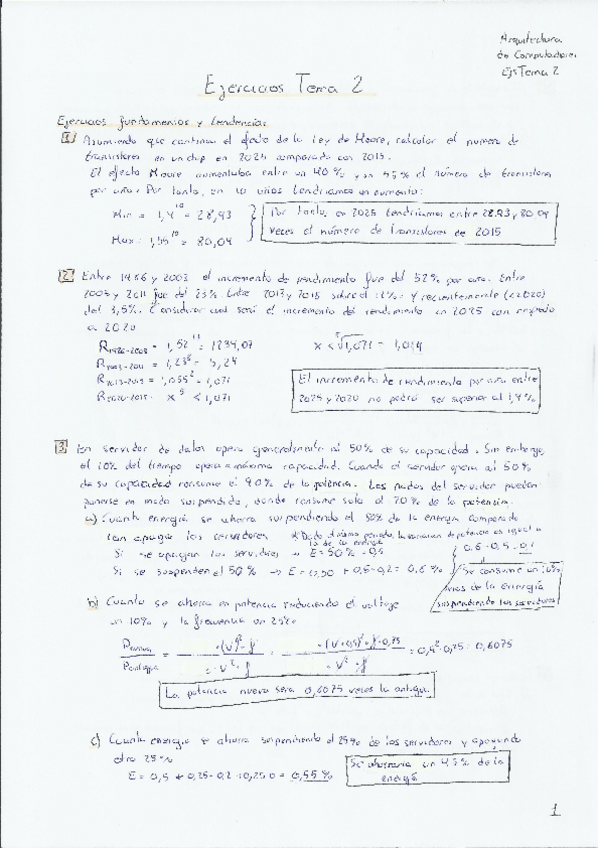 Arquitectura
de Computadores
Ejs Tema 2
Ejercicios Tema 2
Ejercicios fundamentos y tendencias
1 Asumiendo que continua el efecto de la Ley de Moore, calcular el numero de
transistores en un chip en 2025 comparado con 2015.
El efecto Moore aumentaba entre un 40% y un 55% el número de transistores
por año. Por tanto, en 10 años tendriamos un aumento:
Min = 1,4^10 = 28,93
Max = 1,55^10 = 80,04
Por tanto, en 2025 tendriamos entre 28.93 y 80.04
veces el número de transistores de 2015
2 Entre 1986 y 2003 el incremento de rendimiento fue del 52% por año. Entre
2003 y 2011 fue del 23%. Entre 2013 y 2015 sobre el 12%. Y recientemente (<2020)
del 3,5%. Considerar cual será el incremento del rendimiento en 2025 con respecto
a 2020
R1986-2003 = 1,52^17 = 1234,07
R2003-2011 = 1,23^8 = 5,24
R2013-2015 = 1,035^2 = 1,071
x^5 < 1,071
x < ⁵√1,071 = 1,014
El incremento de rendimiento por año entre
2025 y 2020 no podrá ser superior al 1,4%
3 Un servidor de datos opera generalmente al 50% de su capacidad. Sin embargo,
el 10% del tiempo opera a máxima capacidad. Cuando el servidor opera al 50%
de su capacidad consume el 90% de la potencia. Los nodos del servidor pueden
ponerse en modo suspendido, donde consume solo el 20% de la potencia.
a) Cuanta energía se ahorra suspendiendo el 50% de la energía comparado
con apagar los servidores
de la energía
Si se apagan los servidores → E = 50% = 0,5
Si se suspenden el 50% → E = 0,50 + 0,5·0,2 = 0,6 %
0,6 - 0,5 = 0,1
Se consume un 10%
más de la energía
suspendiendo los servidores
b) Cuanto se ahorra en potencia reduciendo el voltaje
un 10% y la frecuencia un 25%
= 0,9²·0,75 = 0,6075
La potencia nueva sera 0,6075 veces la antigua.
c) Cuanta energía se ahorra suspendiendo el 25% de los servidores y apagando
otro 25%
E = 0,5 + 0,25·0,2 + 0,25·0 = 0,55 %
Se ahorraria un 45% de la
energía
1